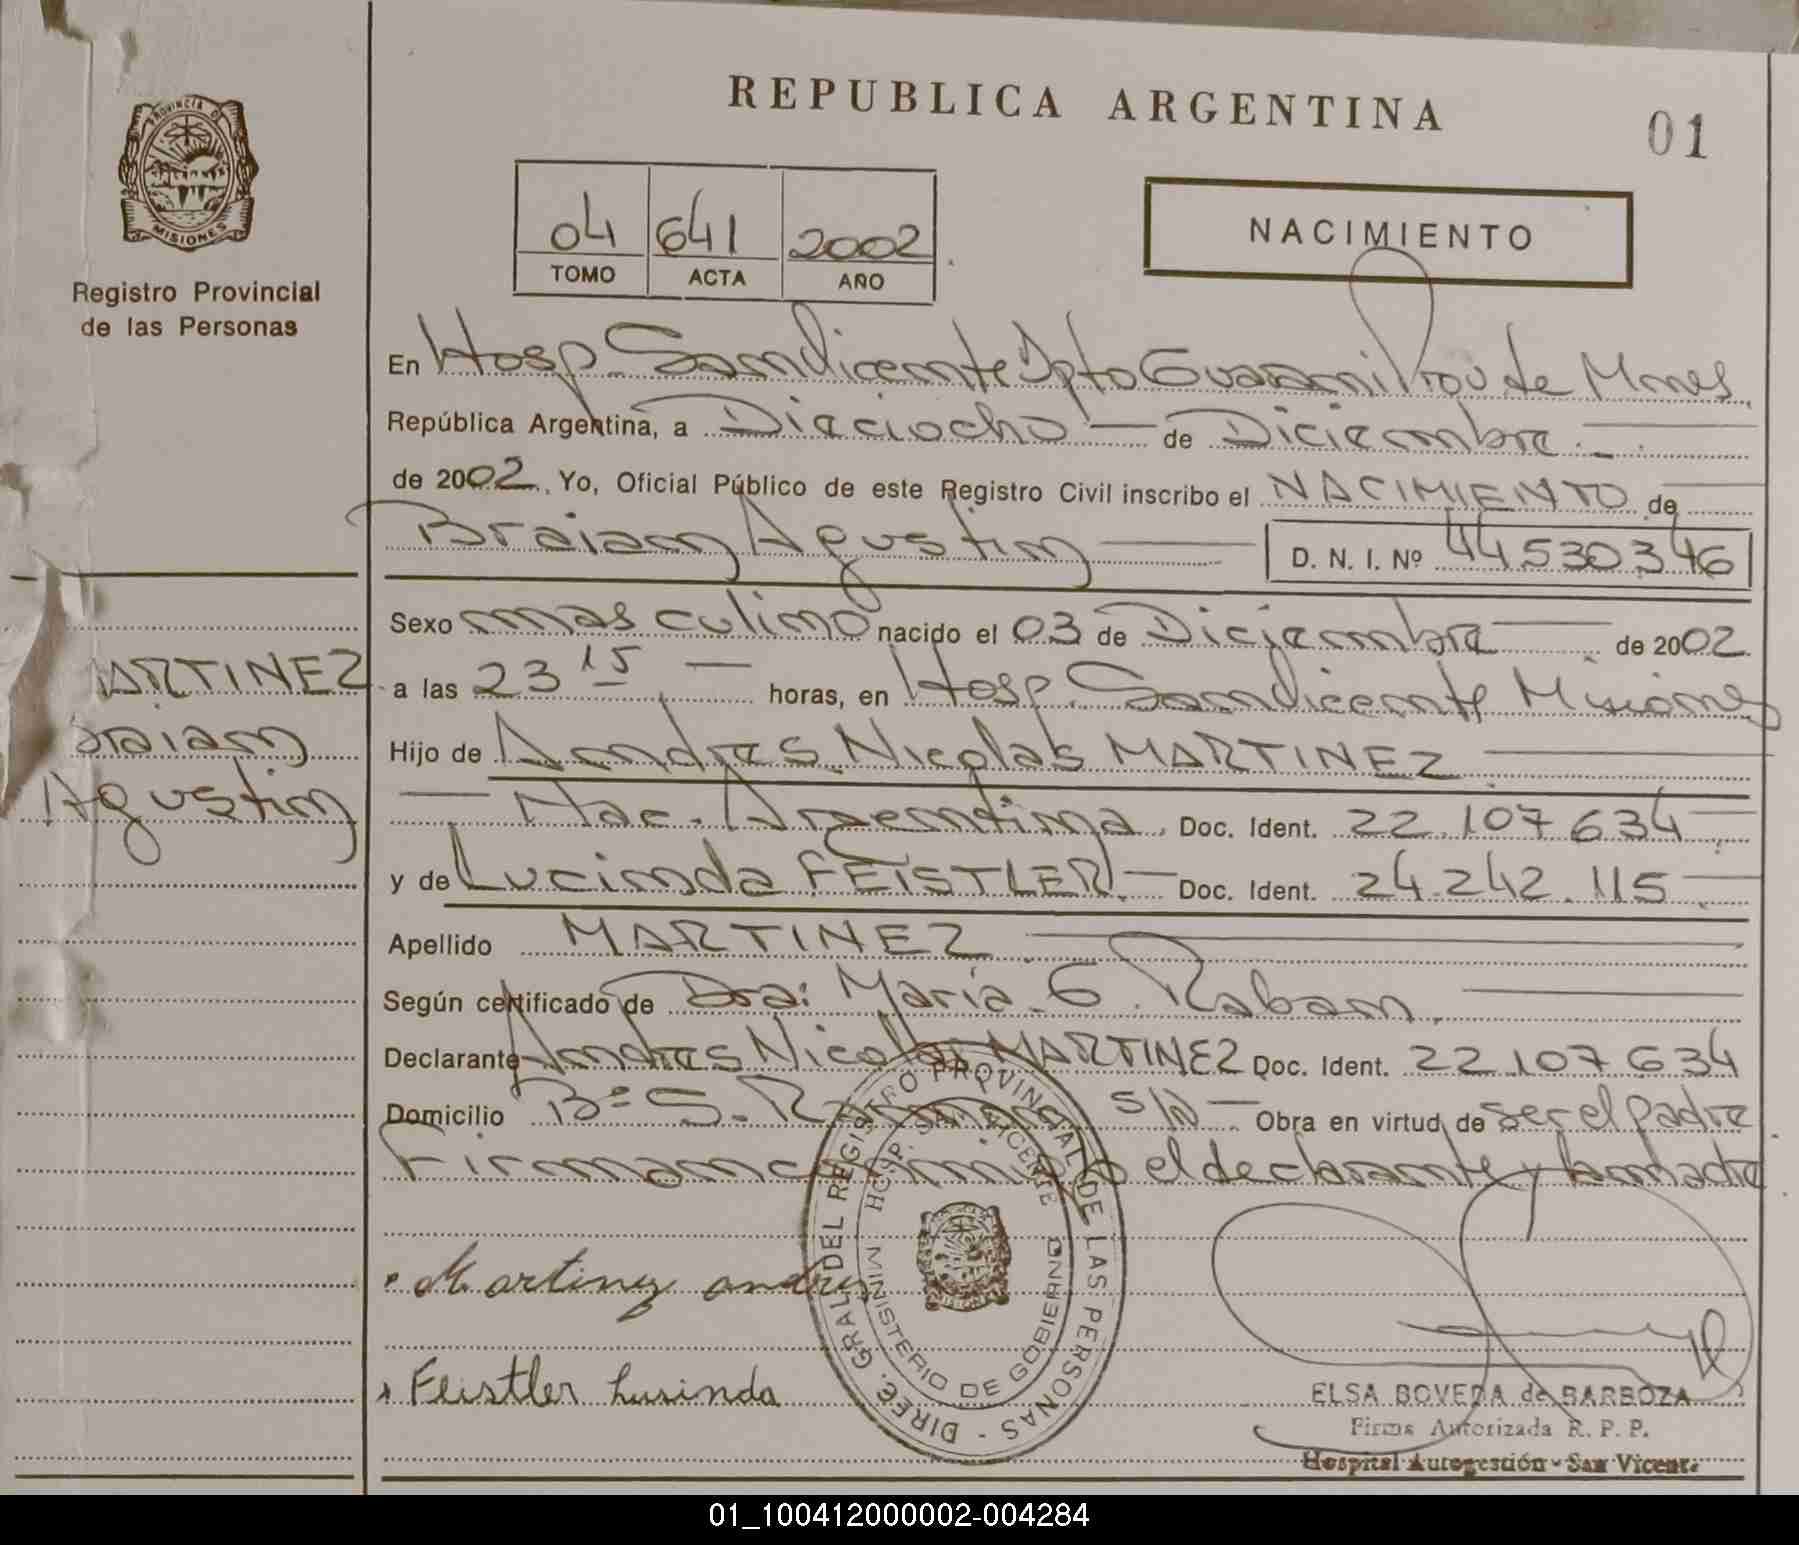 REPUBLICA ARGENTINA
01
PROVINCIA D
MISIONES
Registro Provincial
de las Personas
04 641 2002
TOMO ACTA AÑO
NACIMIENTO
En Hosp. San Vicente Dpto Guaraní Prov de Mnes.
República Argentina, a Dieciocho de Diciembre
de 2002. Yo, Oficial Público de este Registro Civil inscribo el NACIMIENTO de
Braian Agustin D. N. I. Nº 44530346
Sexo masculino nacido el 03 de Diciembre de 2002
a las 23 15 horas, en Hosp. San Vicente Misiones
Hijo de Andres Nicolas MARTINEZ
Nac. Argentina. Doc. Ident. 22.107634
y de Lucinda FEISTLER Doc. Ident. 24.242.115
Apellido MARTINEZ
Según certificado de Dra: María G. Raban.
Declarante Andres Nicolas MARTINEZ Doc. Ident. 22.107634
Domicilio Bº S. S/N Obra en virtud de ser el padre
Firman el declarante y la madre
ARTINEZ
raian
Agustin
Martinez andres
Feistler Lusinda
DIREC. GRAL DEL REGISTRO PROVINCIAL DE LAS PERSONAS -
HOSP. SAN VICENTE
MINISTERIO DE GOBIERNO
ELSA BOVEDA de BARBOZA
Firma Autorizada R. P. P.
Hospital Autogestión - San Vicente
01_100412000002-004284